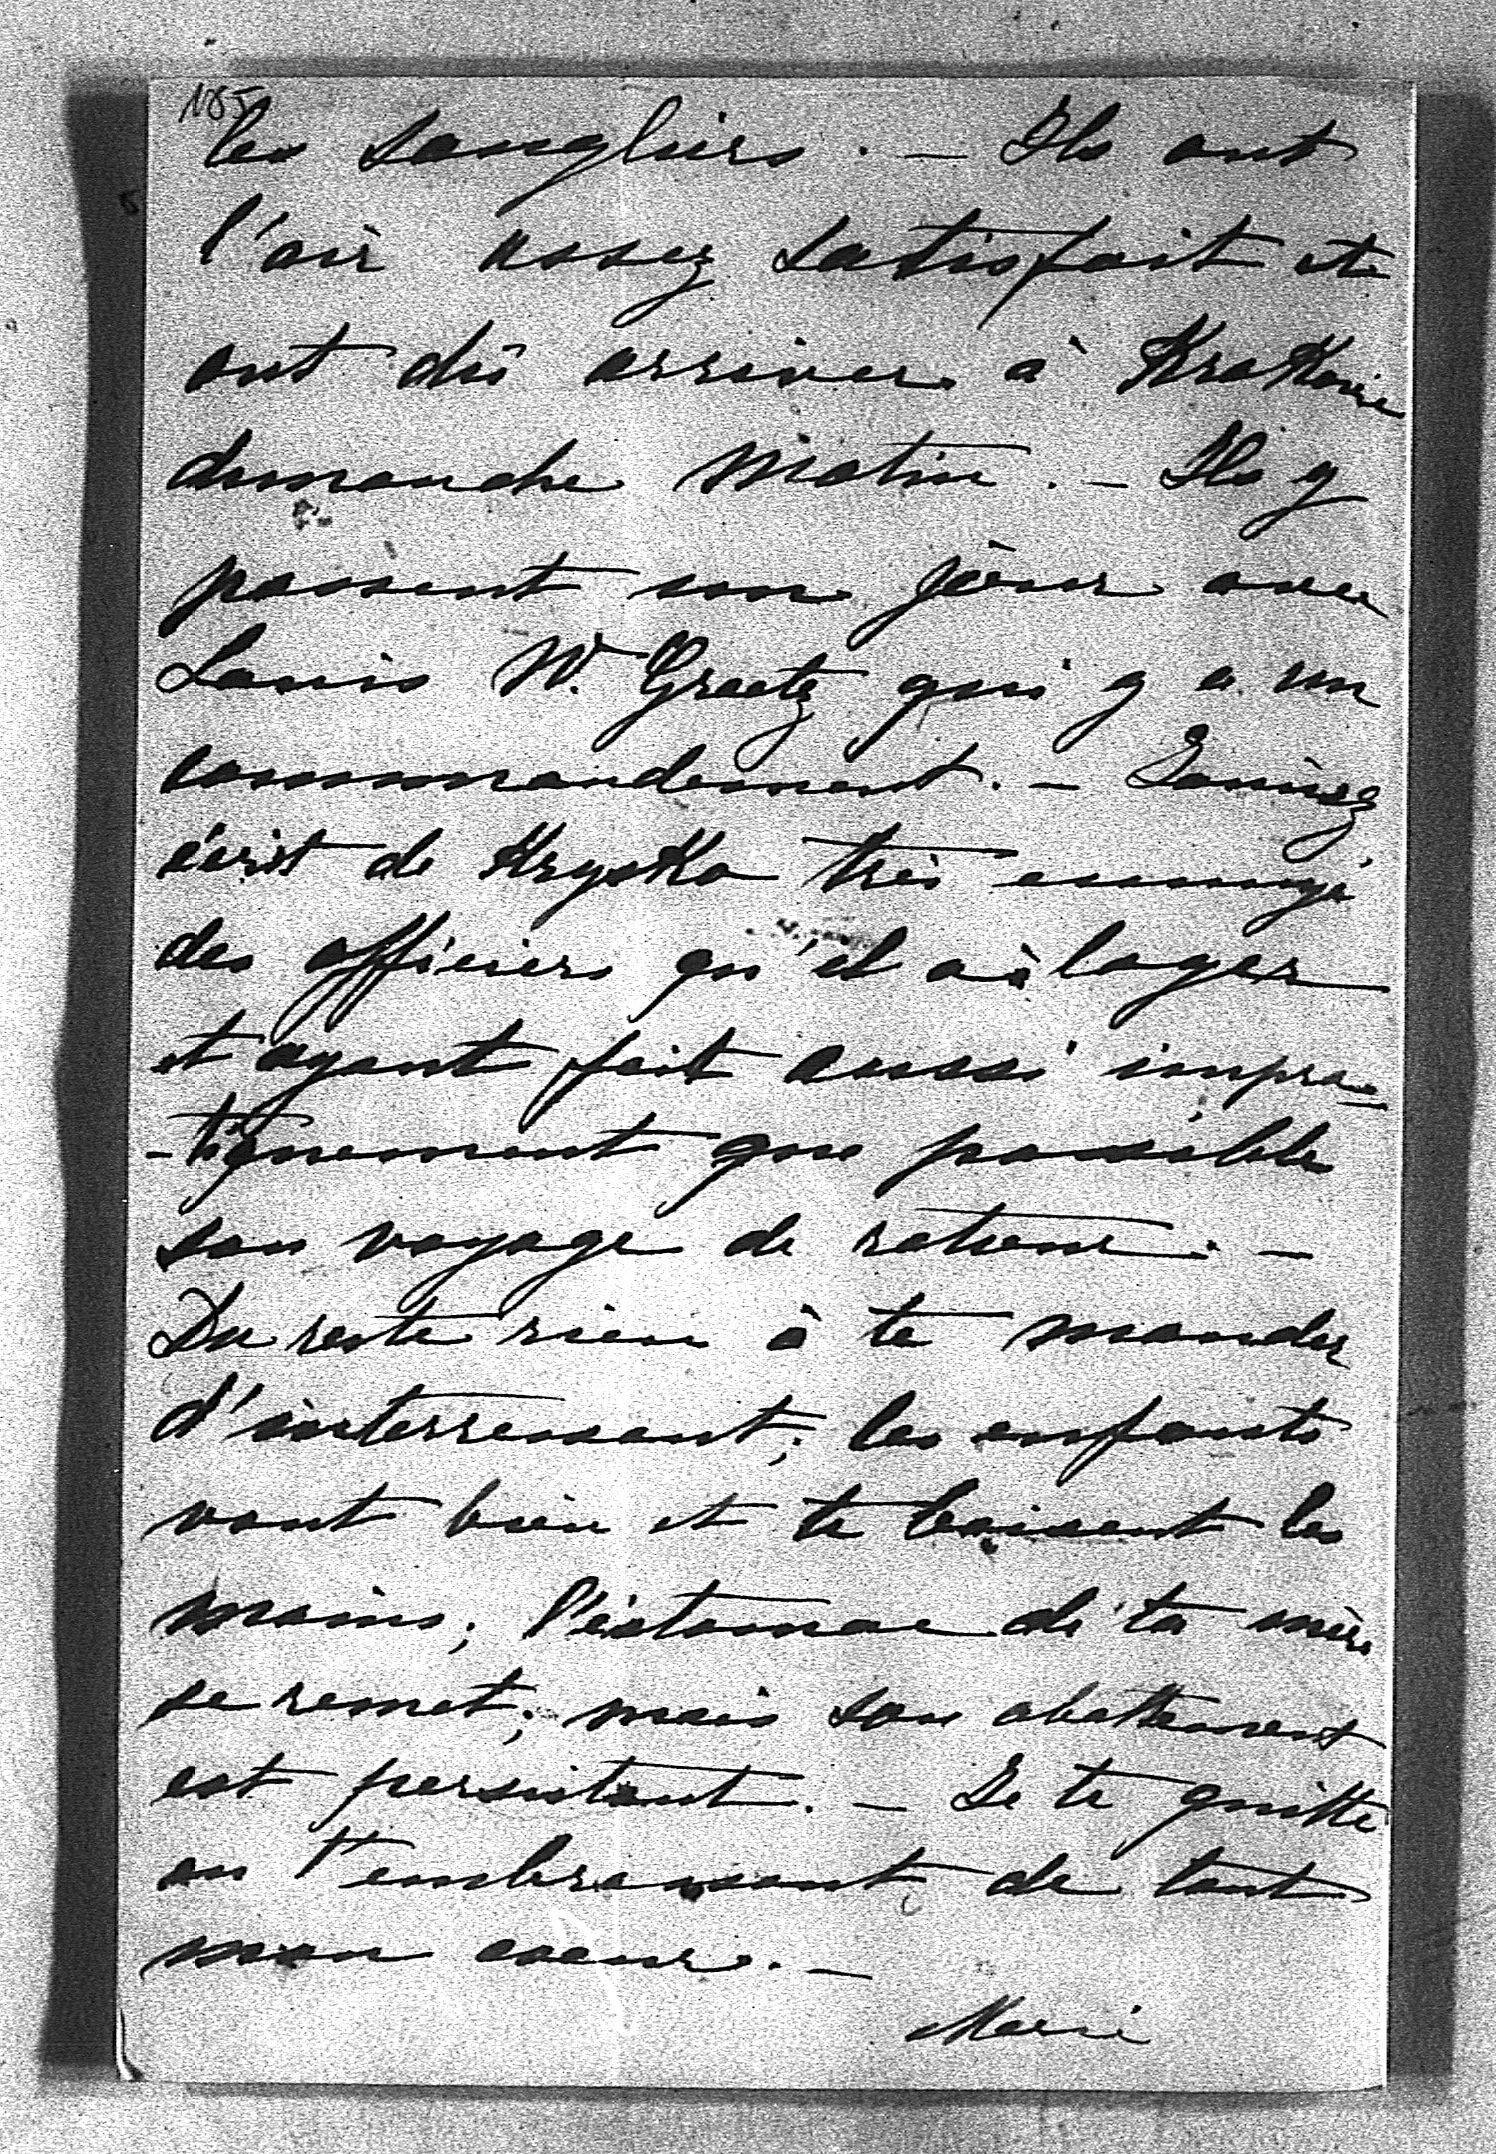 185
les sangliers. — Ils ont
l'air assez satisfait et
ont dû arriver à Krakovie
dimanche matin. — Ils y
passent un jour avec
Louis W. Graetz qui y a un
commandement. —
écrit de Krysko très ennuyé
des officiers qu'il a à loger
et ayant fait aussi impra-
-tiquement que possible
son voyage de retour. —
Du reste rien à te mander
d'interressant; les enfants
vont bien et te baisent les
mains; l'éstomac de ta mère
se remet; mais son abattement
est persistant. — Je te quitte
en t'embrassant de tout
mon coeur. —
Marie